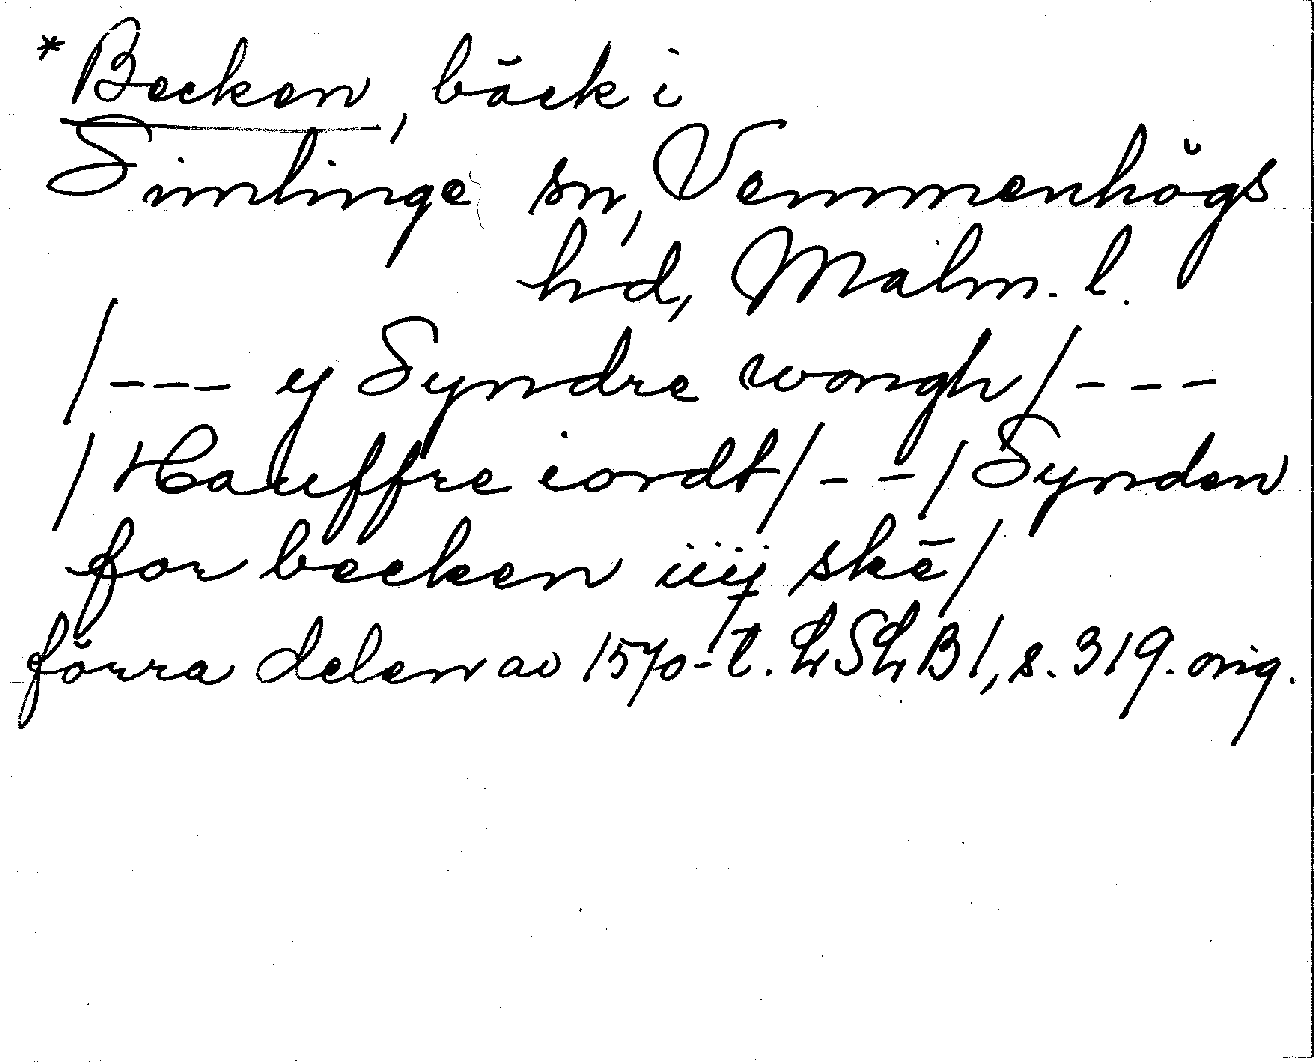 *Becken, bäck i
Simlinge sn, Vemmenhögs
hd, Malm. l.
/--- y Syndre wongh/---
/Hauffre iordt/--/Synden
for becken iiij skē/
förra delen av 1570-t. LSLB1, s. 319. orig.